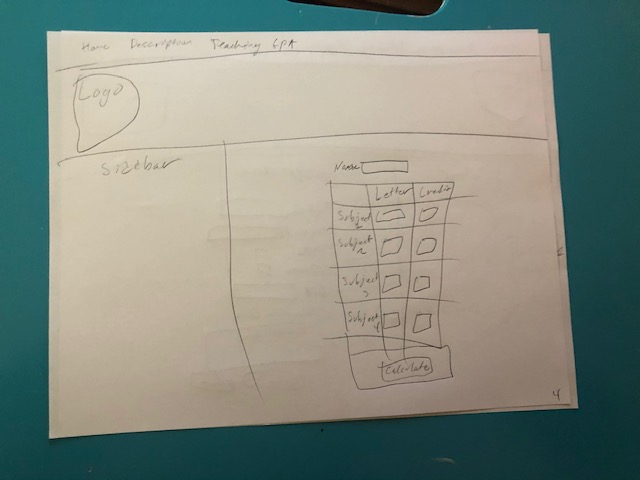 Home Description Teaching GPA
Logo
Sidebar
Name
Letter Credit
Subject 1
Subject 2
Subject 3
Subject 4
Calculate
4